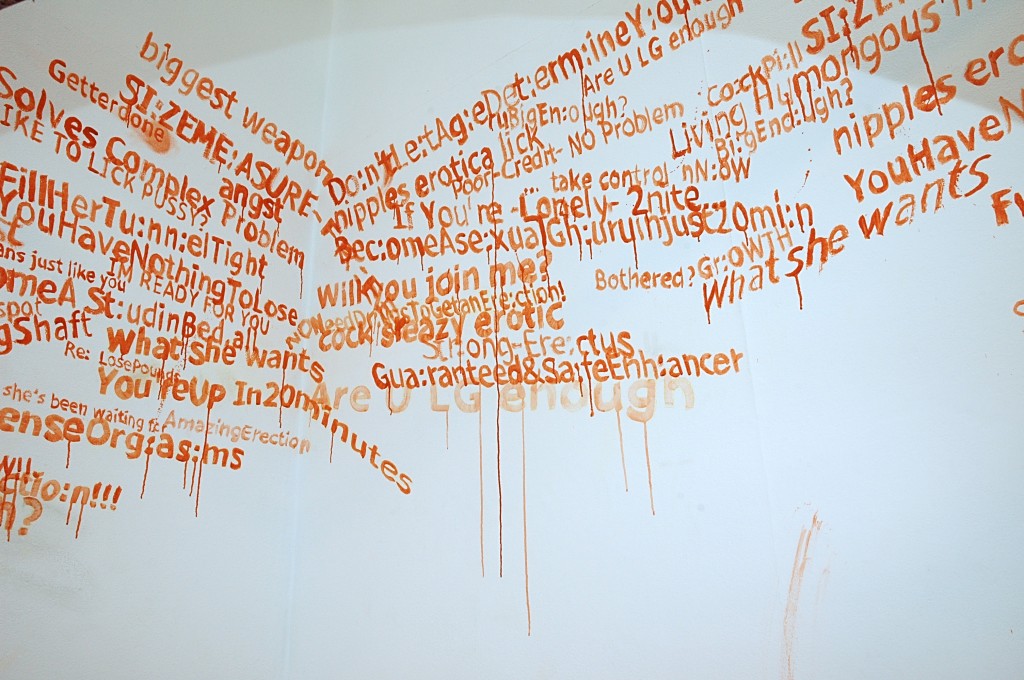 biggest weapon
Getterdone
SI:ZEME:ASURE-
Solves Complex Problem
angst
LIKE TO LICK PUSSY?
FillHerTu:nn:elTight
YouHaveNothingToLose
just like you
I'M READY FOR YOU
omeA St:udinBed all
spot
gShaft
What she wants
Re: LosePounds
You'reUp In20minutes
she's been waiting for
AmazingErection
enseOrg:as:ms
ctio:n!!!
n?
Do:n'tLe:rtAg:eDet:erm:ineY:ou
Are U LG enough
BigEn:ough?
nipples erotica lick
Poor-Credit- NO Problem
... take control nN:0W
If You're -Lonely- 2nite...
Bec:omeAse:xualGh:uruinjust20mi:n
Will you join me?
NeedDr:
ToGetanEre:ction!
cock sleazy erotic
Str:ong-Ere:ctus
Gua:ranteed&Sa:feEnh:ancer
Are U LG enough
SI:ZE
co:ckPi:ll
Living Hymongous
Bi:gEno:ugh?
nipples ero
YouHaveN
Bothered? Gr:oWTH
What she wants